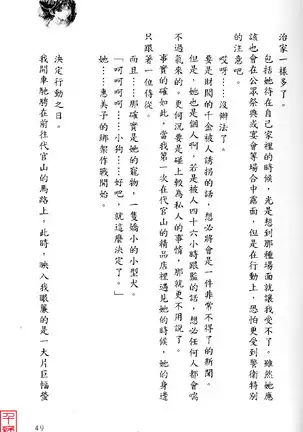 治家一樣多了。
包括她待在自己家裡的時候,光是想到那種場面就讓我受不了。雖然她應
該也會在公眾祭典或宴會等場合中露面,但是在行動上,恐怕更受到警衛特別
的注意吧。
哎呀……沒辦法了。
要是財閥的千金被人誘拐的話,想必將會是一件非常不得了的新聞。
但是,她也是個人啊,若是被人四十六小時跟監的話,想必任何人都會喘
不過氣來的。更何況要是碰上較為私人的事情,那就更不用說了。
事實的確如此,當我第一次在代官山的精品店裡遇見她的時候,她的身邊
只跟著一位侍從。
而且……那確實是她的寵物,一隻嬌小的小型犬。
「呵呵呵……小狗……好吧,就這麼決定了。」
她……惠美子的綁架作戰開始。
決定行動之日。
我開車馳騁在前往代官山的馬路上,此時,映入我眼簾的是一大片巨幅螢
49